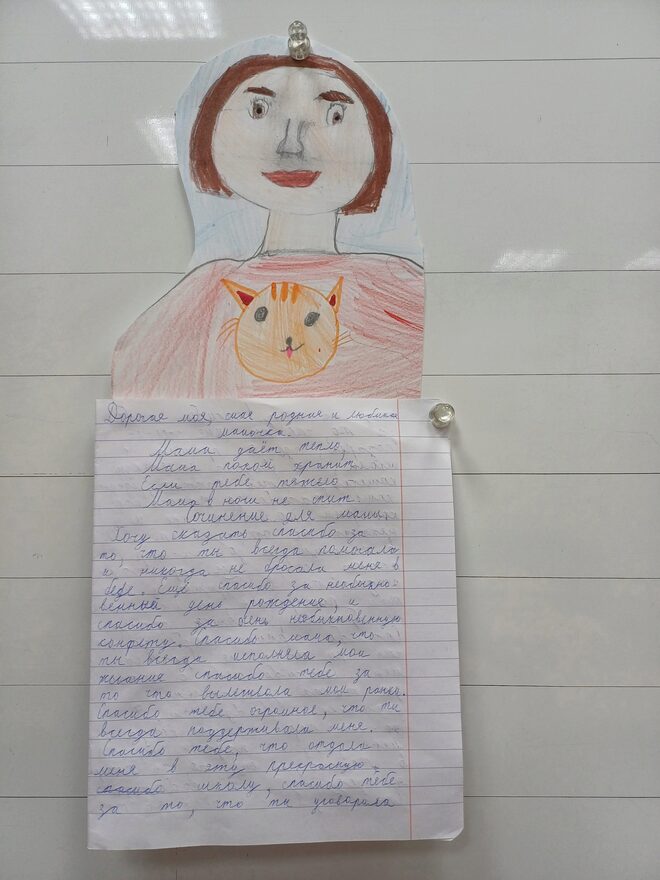 Дорогая моя, самая родная и любимая
мамочка.
Мама даёт тепло,
Мама покой хранит
Если тебе тяжело
Мама в ночи не спит
Сочинение для мамы.
Хочу сказать спасибо за
то, что ты всегда помогала
и никогда не бросала меня в
беде. Ещё спасибо за необыкно-
венный день рождение, и
спасибо за очень необыкновенную
конфету. Спасибо мама, что
ты всегда исполняла мои
желания спасибо тебе за
то что вылечивала мои ранки.
Спасибо тебе огромное, что ты
всегда поддерживала меня.
Спасибо тебе, что отдала
меня в эту прекрасную
школу, спасибо тебе
за то, что ты уговорала